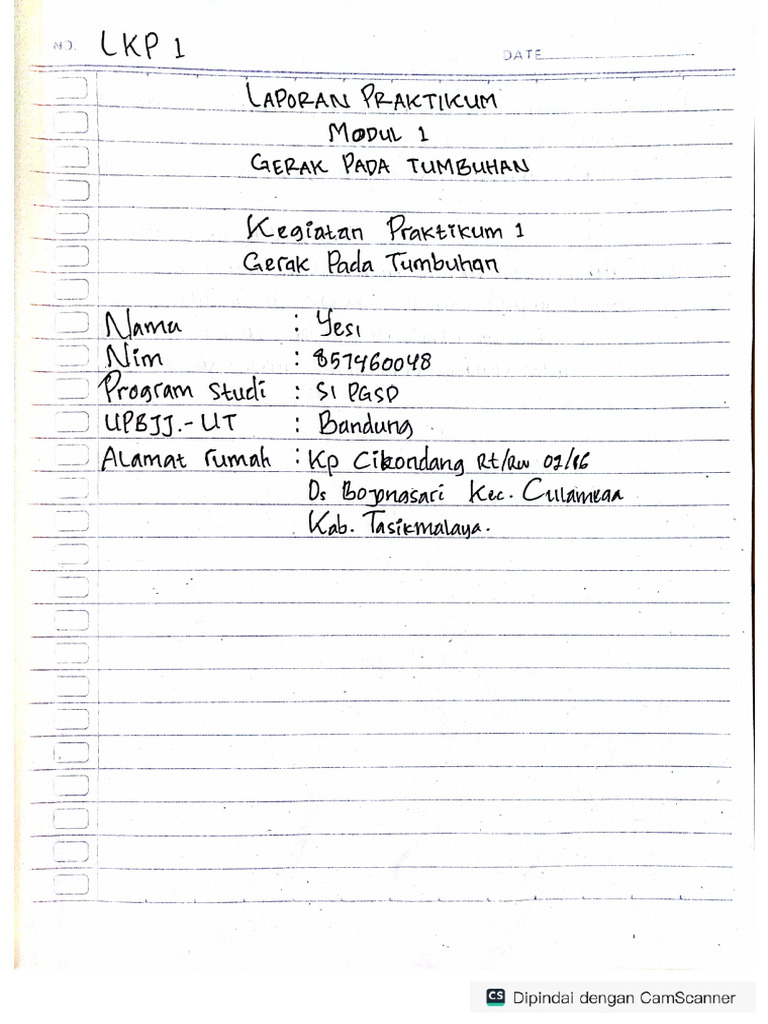 NO. LKP 1
DATE
LAPORAN PRAKTIKUM
MODUL 1
GERAK PADA TUMBUHAN
Kegiatan Praktikum 1
Gerak Pada Tumbuhan
Nama : Yesi
Nim : 857460048
Program Studi : S1 PGSD
UPBJJ.-UT : Bandung
Alamat rumah : Kp Cikondang Rt/Rw 02/06
Ds Kec. Culamega
Kab. Tasikmalaya.
CS Dipindai dengan CamScanner